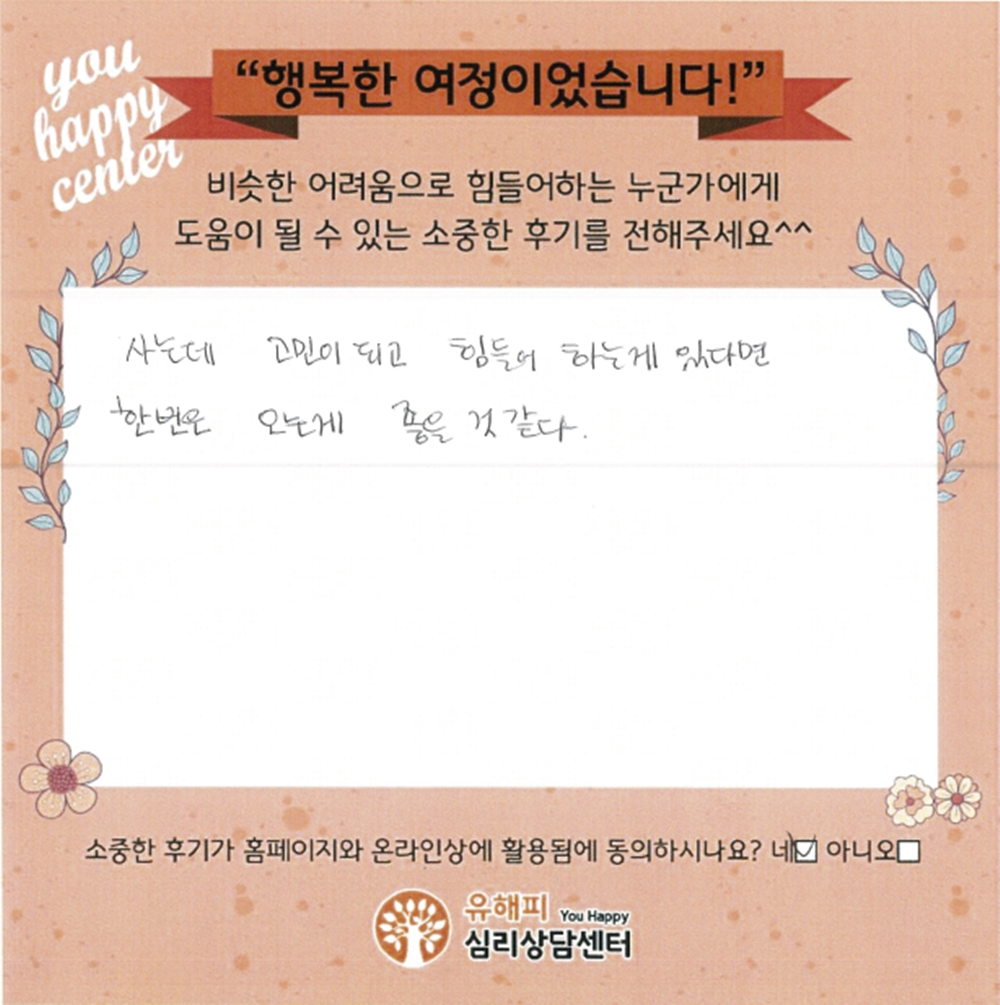 you
happy
center
“행복한 여정이었습니다!”
비슷한 어려움으로 힘들어하는 누군가에게
도움이 될 수 있는 소중한 후기를 전해주세요^^
사는데 고민이 되고 힘들어 하는게 있다면
한번은 오는게 좋을 것 같다.
소중한 후기가 홈페이지와 온라인상에 활용됨에 동의하시나요? 네☑ 아니오☐
유해피 You Happy
심리상담센터